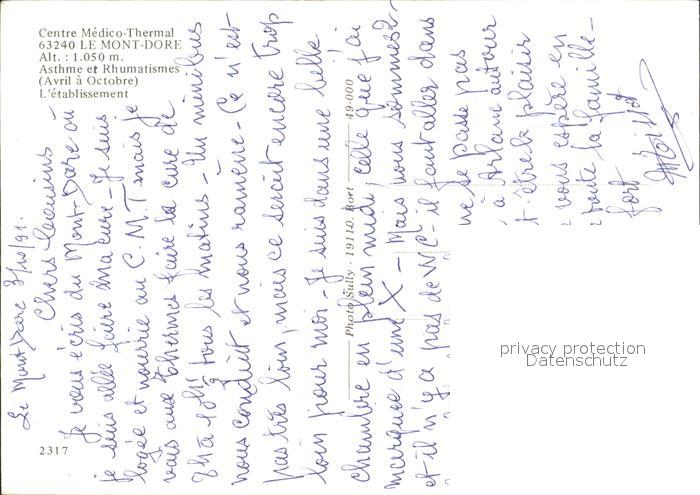 Centre Médico-Thermal
63240 LE MONT-DORE
Alt. : 1.050 m.
Asthme et Rhumatismes
(Avril à Octobre)
L'établissement
Le Mont-Dore 7/10/91.
Chers Cousins -
Je vous écris du Mont-Dore où
je suis allée faire ma cure - Je suis
logée et nourrie au C.M.T mais je
vais aux thermes faire la cure de
8h à 10h tous les matins - Un minibus
nous conduit et nous ramène - Ce n'est
pas très loin, mais ce serait encore trop
loin pour moi - Je suis dans une belle
chambre en plein midi, celle que j'ai
marquée d'une X - Mais nous sommes 2 -
et il n'y a pas de WC - il faut aller dans
ne se passe pas
à Arlanc autour
t'être le plaisir
vous espère en
toute la famille -
fort
Photo Sully - 19110. Bort 49-000
2317
privacy protection
Datenschutz